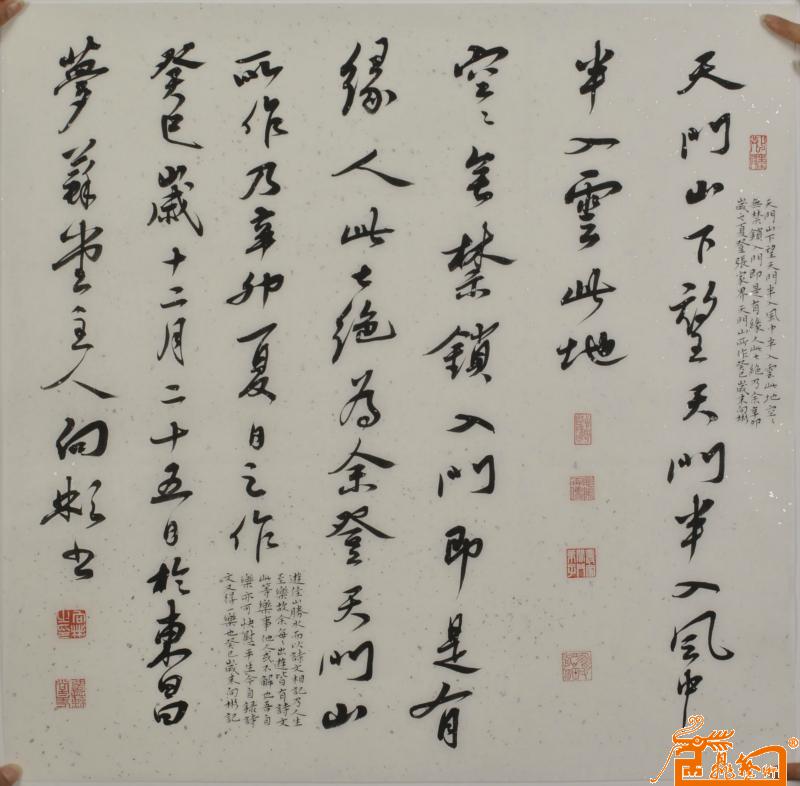 天門山下望天門半入風中
半入雲此地
空〻無禁鎖入門即是有
緣人此七絕為余登天門山
所作乃辛卯夏日之作
癸巳歲十二月二十五日於東昌
夢蘇堂主人向彬書
天門山下望天門半入風中半入雲此地空〻
無禁鎖入門即是有緣人此七絕乃余辛卯
歲之夏登張家界天門山所作癸巳歲末向彬
遊佳山勝水而以詩文相記乃人生
至樂故余每〻出遊皆有詩文
此等樂事他人或不解也吾自
樂亦可快慰平生今自錄詩
文又得一樂也癸巳歲末向彬記